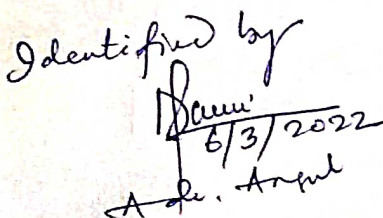 Identified by
6/3/2022
Adv. Angul